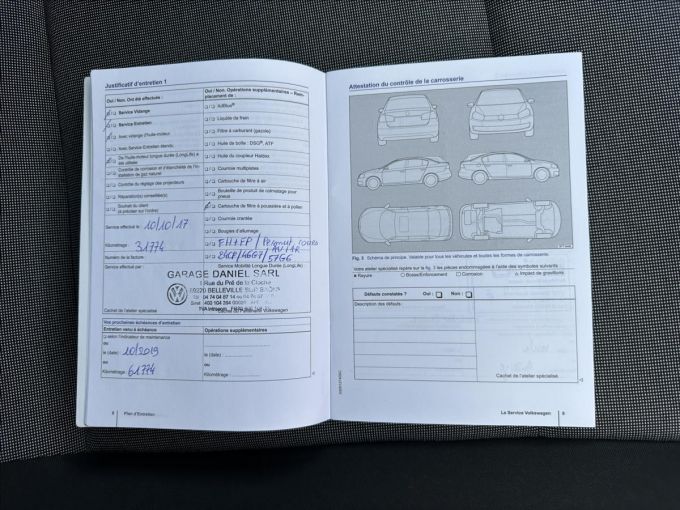 Justificatif d'entretien 1
Oui / Non. Ont été effectués :
Service Vidange
Service Entretien
Avec vidange d'huile-moteur
Avec Service Entretien étendu
De l'huile moteur longue durée (LongLife) a
été utilisée
Contrôle de corrosion et d'étanchéité de l'ins-
tallation de gaz naturel
Contrôle du réglage des projecteurs
Réparation(s) conseillée(s)
Souhait du client
(à préciser sur l'ordre)
Service effectué le : 10/10/17
Kilométrage : 31774
Numéro de la facture :
Service effectué par :
Oui / Non. Opérations supplémentaires – Rem-
placement de :
AdBlue®
Liquide de frein
Filtre à carburant (gazole)
Huile de boîte : DSG®, ATF
Huile du coupleur Haldex
Courroie multipistes
Cartouche de filtre à air
Bouteille de produit de colmatage pour
pneus
Cartouche de filtre à poussière et à pollen
Courroie crantée
Bougies d'allumage
Service Mobilité Longue Durée (LongLife)
GARAGE DANIEL SARL
1 Rue du Pré de la Cloche
69220 BELLEVILLE SUR SAÔNE
Tél 04 74 04 87 14
Cachet de l'atelier spécialisé
Volkswagen
Vos prochaines échéances d'entretien
Entretien venu à échéance
Opérations supplémentaires
selon l'indicateur de maintenance
ou
le (date) : 10/2019
le (date) :
ou
ou
Kilométrage : 61774
Kilométrage :
8 Plan d'Entretien
Attestation du contrôle de la carrosserie
Fig. 3 Schéma de principe. Valable pour tous les véhicules et toutes les formes de carrosserie.
Votre atelier spécialisé repère sur la fig. 3 les pièces endommagées à l'aide des symboles suivants :
Rayure
Bosse/Enfoncement
Corrosion
Impact de gravillons
Défauts constatés ? Oui : Non :
Description des défauts :
Cachet de l'atelier spécialisé
Le Service Volkswagen 9